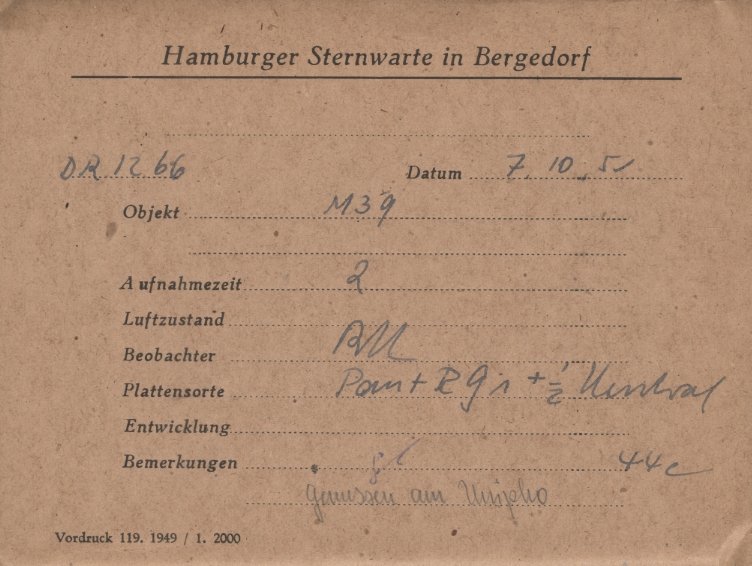 Hamburger Sternwarte in Bergedorf
DR 1266 Datum 7. 10. 51
Objekt M39
Aufnahmezeit 2
Luftzustand
Beobachter
Plattensorte Pan + R G 1 + 1/2 Neutral
Entwicklung
Bemerkungen 44c
Gemessen am Unipho
Vordruck 119. 1949 / 1. 2000